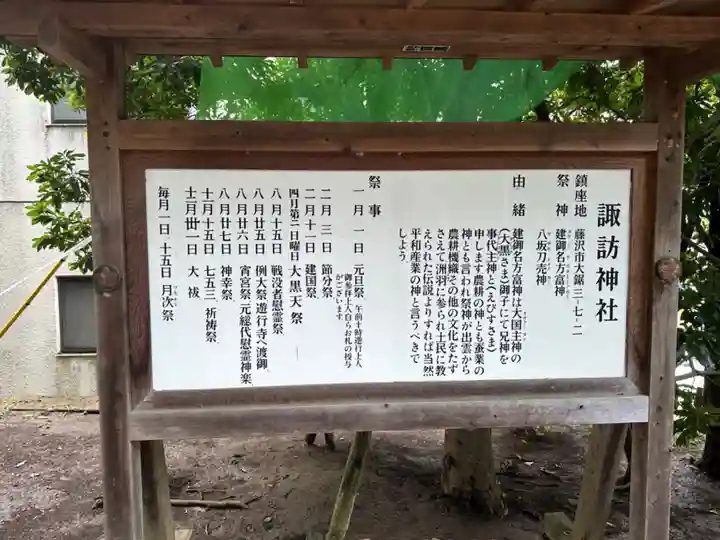 諏訪神社
鎮座地 藤沢市大鋸三-七-二
祭神 建御名方富神
八坂刀売神
由緒 建御名方富神は大国主神の
(大黒さま)御子にて兄神を
事代主神(えびすさま)と
申します農耕の神とも蚕業の
神とも言われ祭神が出雲から
農耕機織その他の文化をたず
さえて洲羽に参られ土民に教
えられた伝説よりすれば当然
平和産業の神と言うべきで
しょう
祭事
一月一日 元旦祭 午前十時遊行上人
御参拝上人自らお札の授与
がございます
二月三日 節分祭
二月十一日 建国祭
四月第二日曜日 大黒天祭
八月十五日 戦没者慰霊祭
八月廿五日 例大祭遊行寺へ渡御
八月廿六日 宵宮祭元総代慰霊神楽
八月廿七日 神幸祭
十一月十五日 七五三祈祷祭
十二月卅一日 大祓
毎月一日 十五日 月次祭